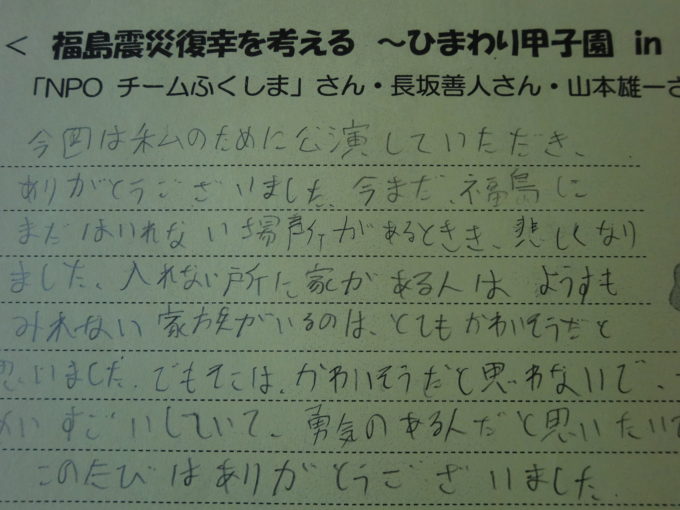 < 福島震災復幸を考える ～ひまわり甲子園 in
「NPO チームふくしま」さん・長坂善人さん・山本雄一さ
今回は私のために公演していただき、
ありがとうございました。今まだ、福島に
まだはいれない場所があるときき、悲しくなり
ました。入れない所に家がある人は ようすも
みれない家族がいるのは、とてもかわいそうだと
思いました。でもそこは、かわいそうだと思わないで、
すごいしていて、勇気のある人だと思いたいで
このたびはありがとうございました。